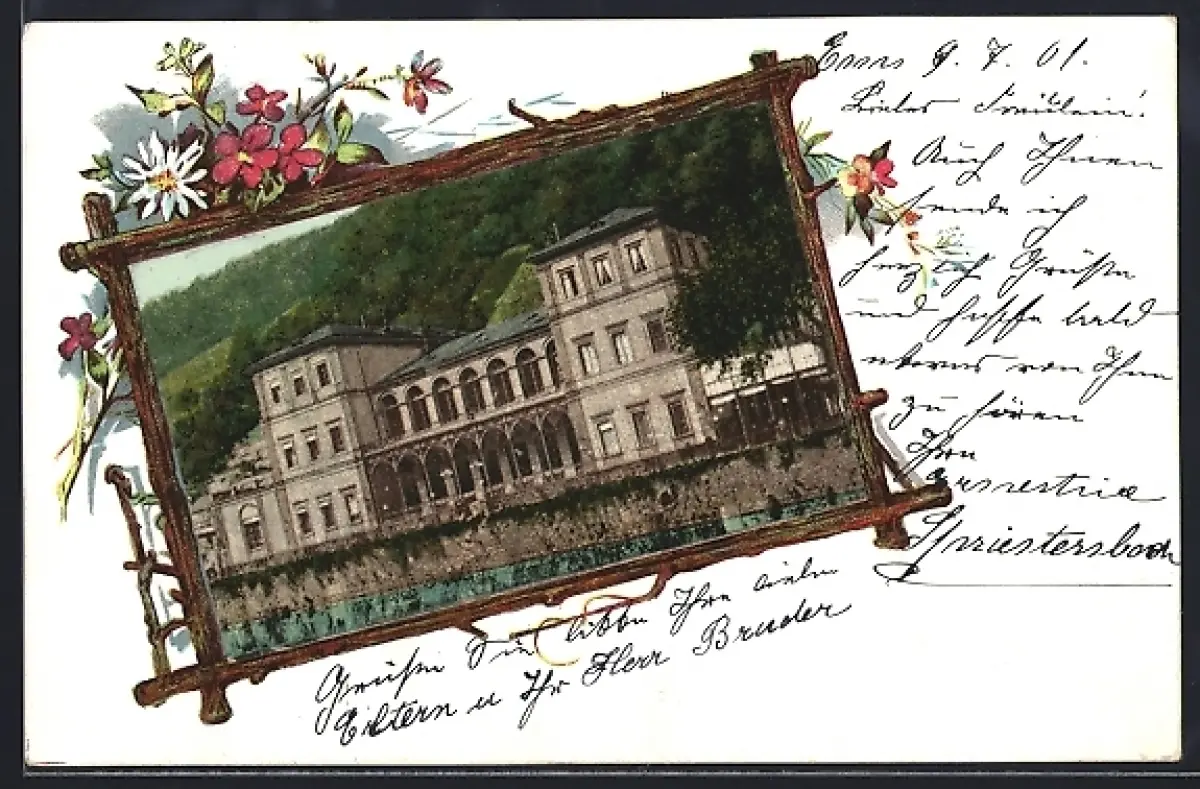 Ems 9. 7. 01.
Liebes Fräulein!
Auch Ihnen
sende ich
herzlich Grüße
und hoffe bald
etwas von Ihnen
zu hören
Ihre
Spriestersbach
Grüßen Sie bitte Ihre lieben
Eltern u Ihr Herr Bruder